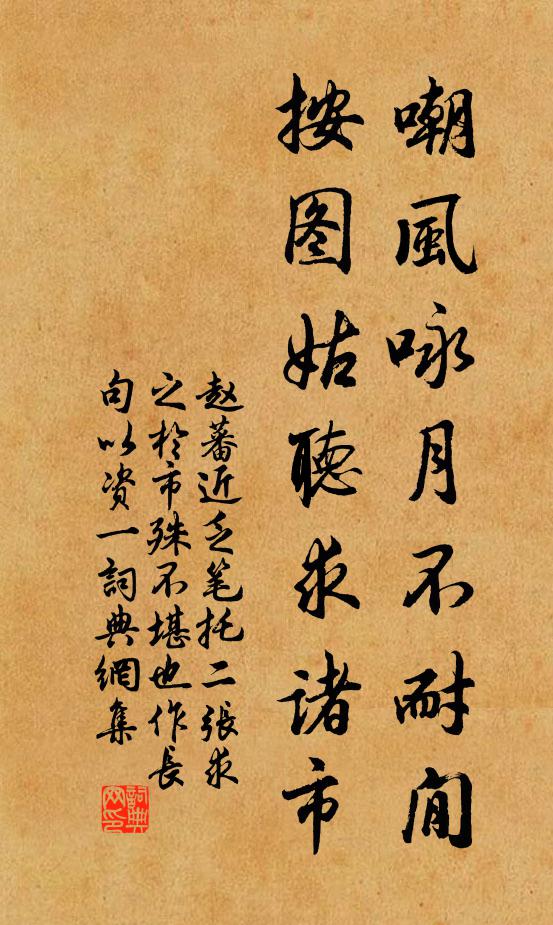 嘲風咏月不耐閒
按图姑聽求諸市
赵蕃近乏笔托二張求
之於市殊不堪也作長
句以资一詞典網集
詞典网印